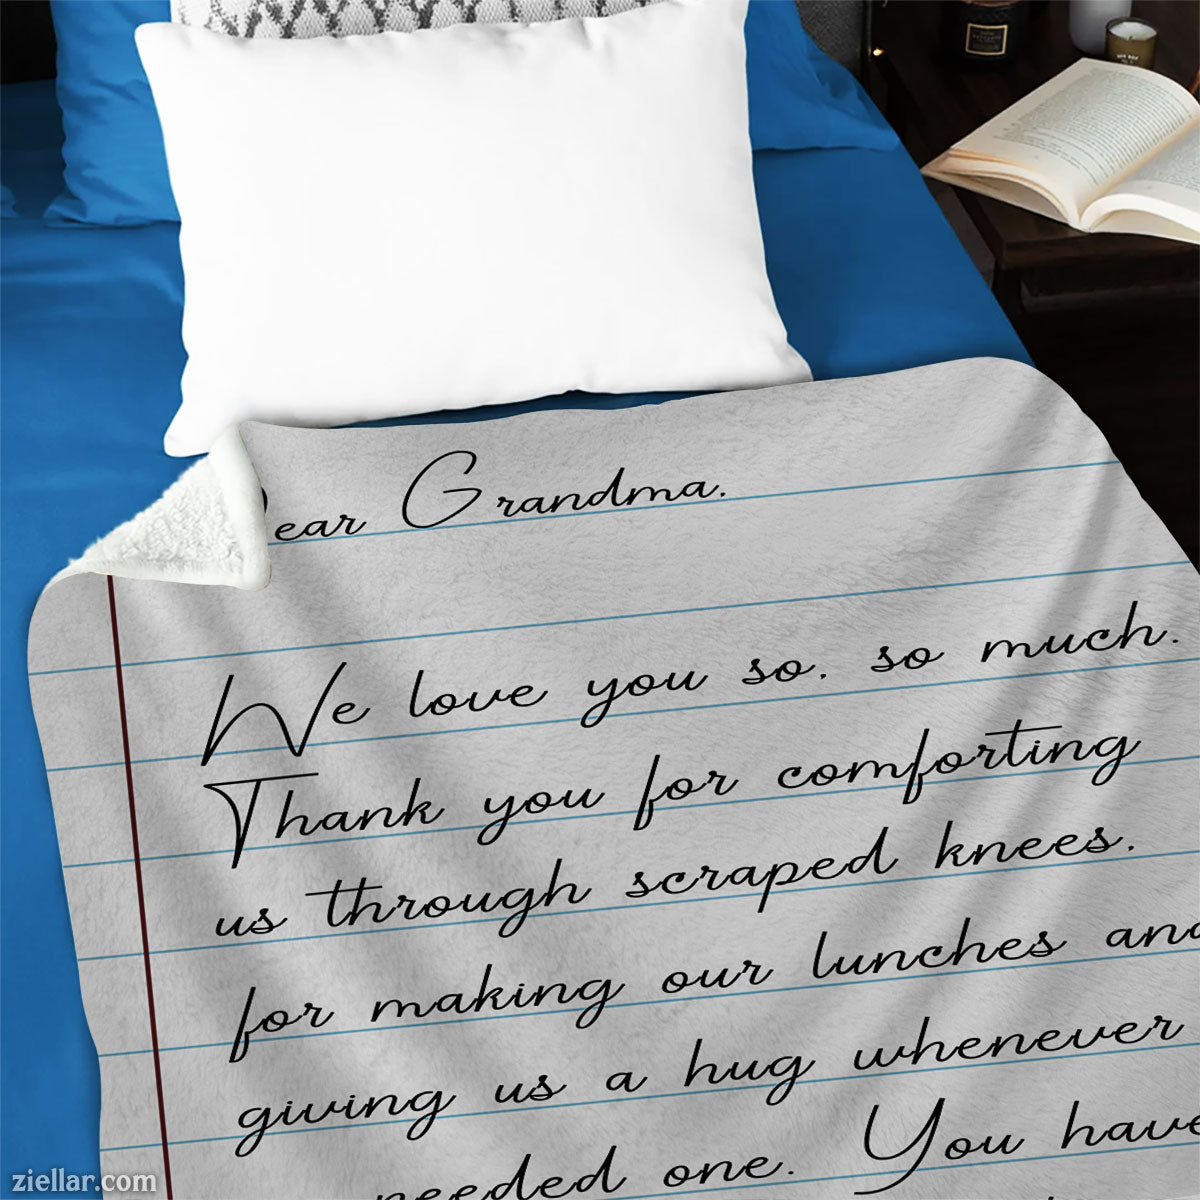 ear Grandma,
We love you so, so much.
Thank you for comforting
us through scraped knees,
for making our lunches and
giving us a hug whenever
needed one. You have
ziellar.com